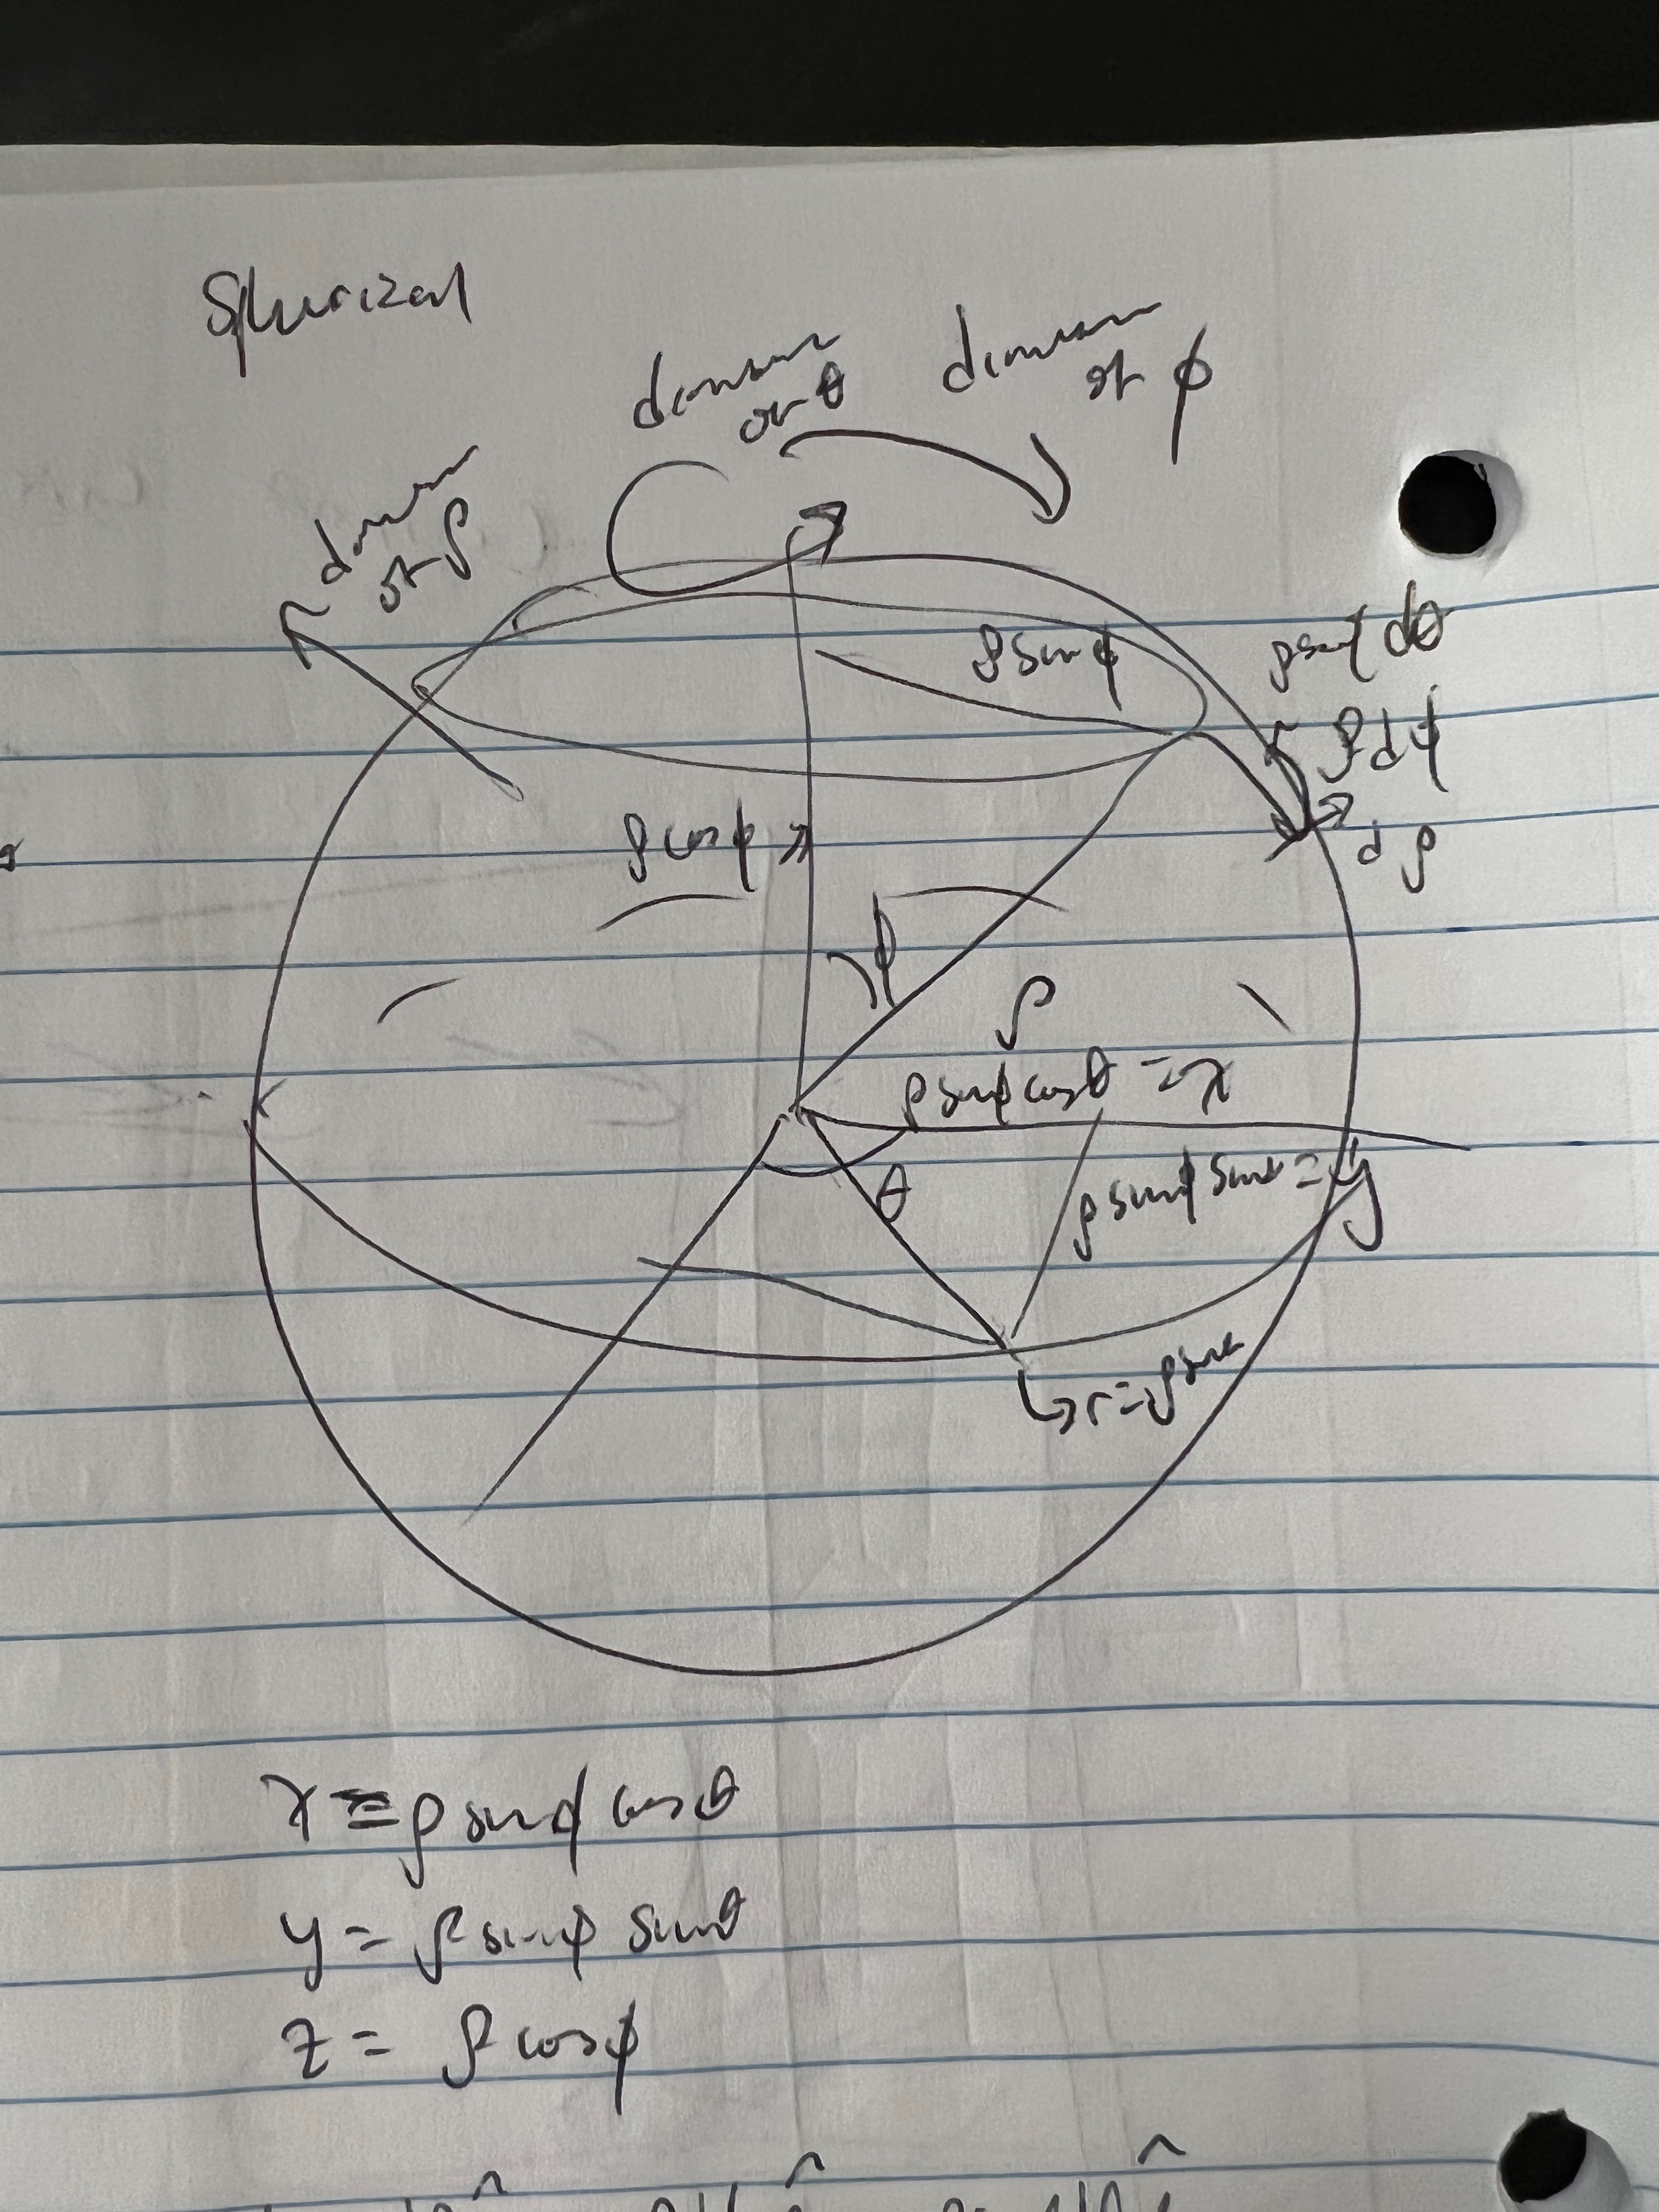 Spherical
domain of θ
domain of ϕ
domain of ρ
ρ sinϕ
ρ sinϕ dθ
ρ dϕ
dρ
ρ cosϕ
ϕ
ρ
ρ sinϕ cosθ = x
θ
ρ sinϕ sinθ = y
r = ρ sin
x = ρ sinϕ cosθ
y = ρ sinϕ sinθ
z = ρ cosϕ